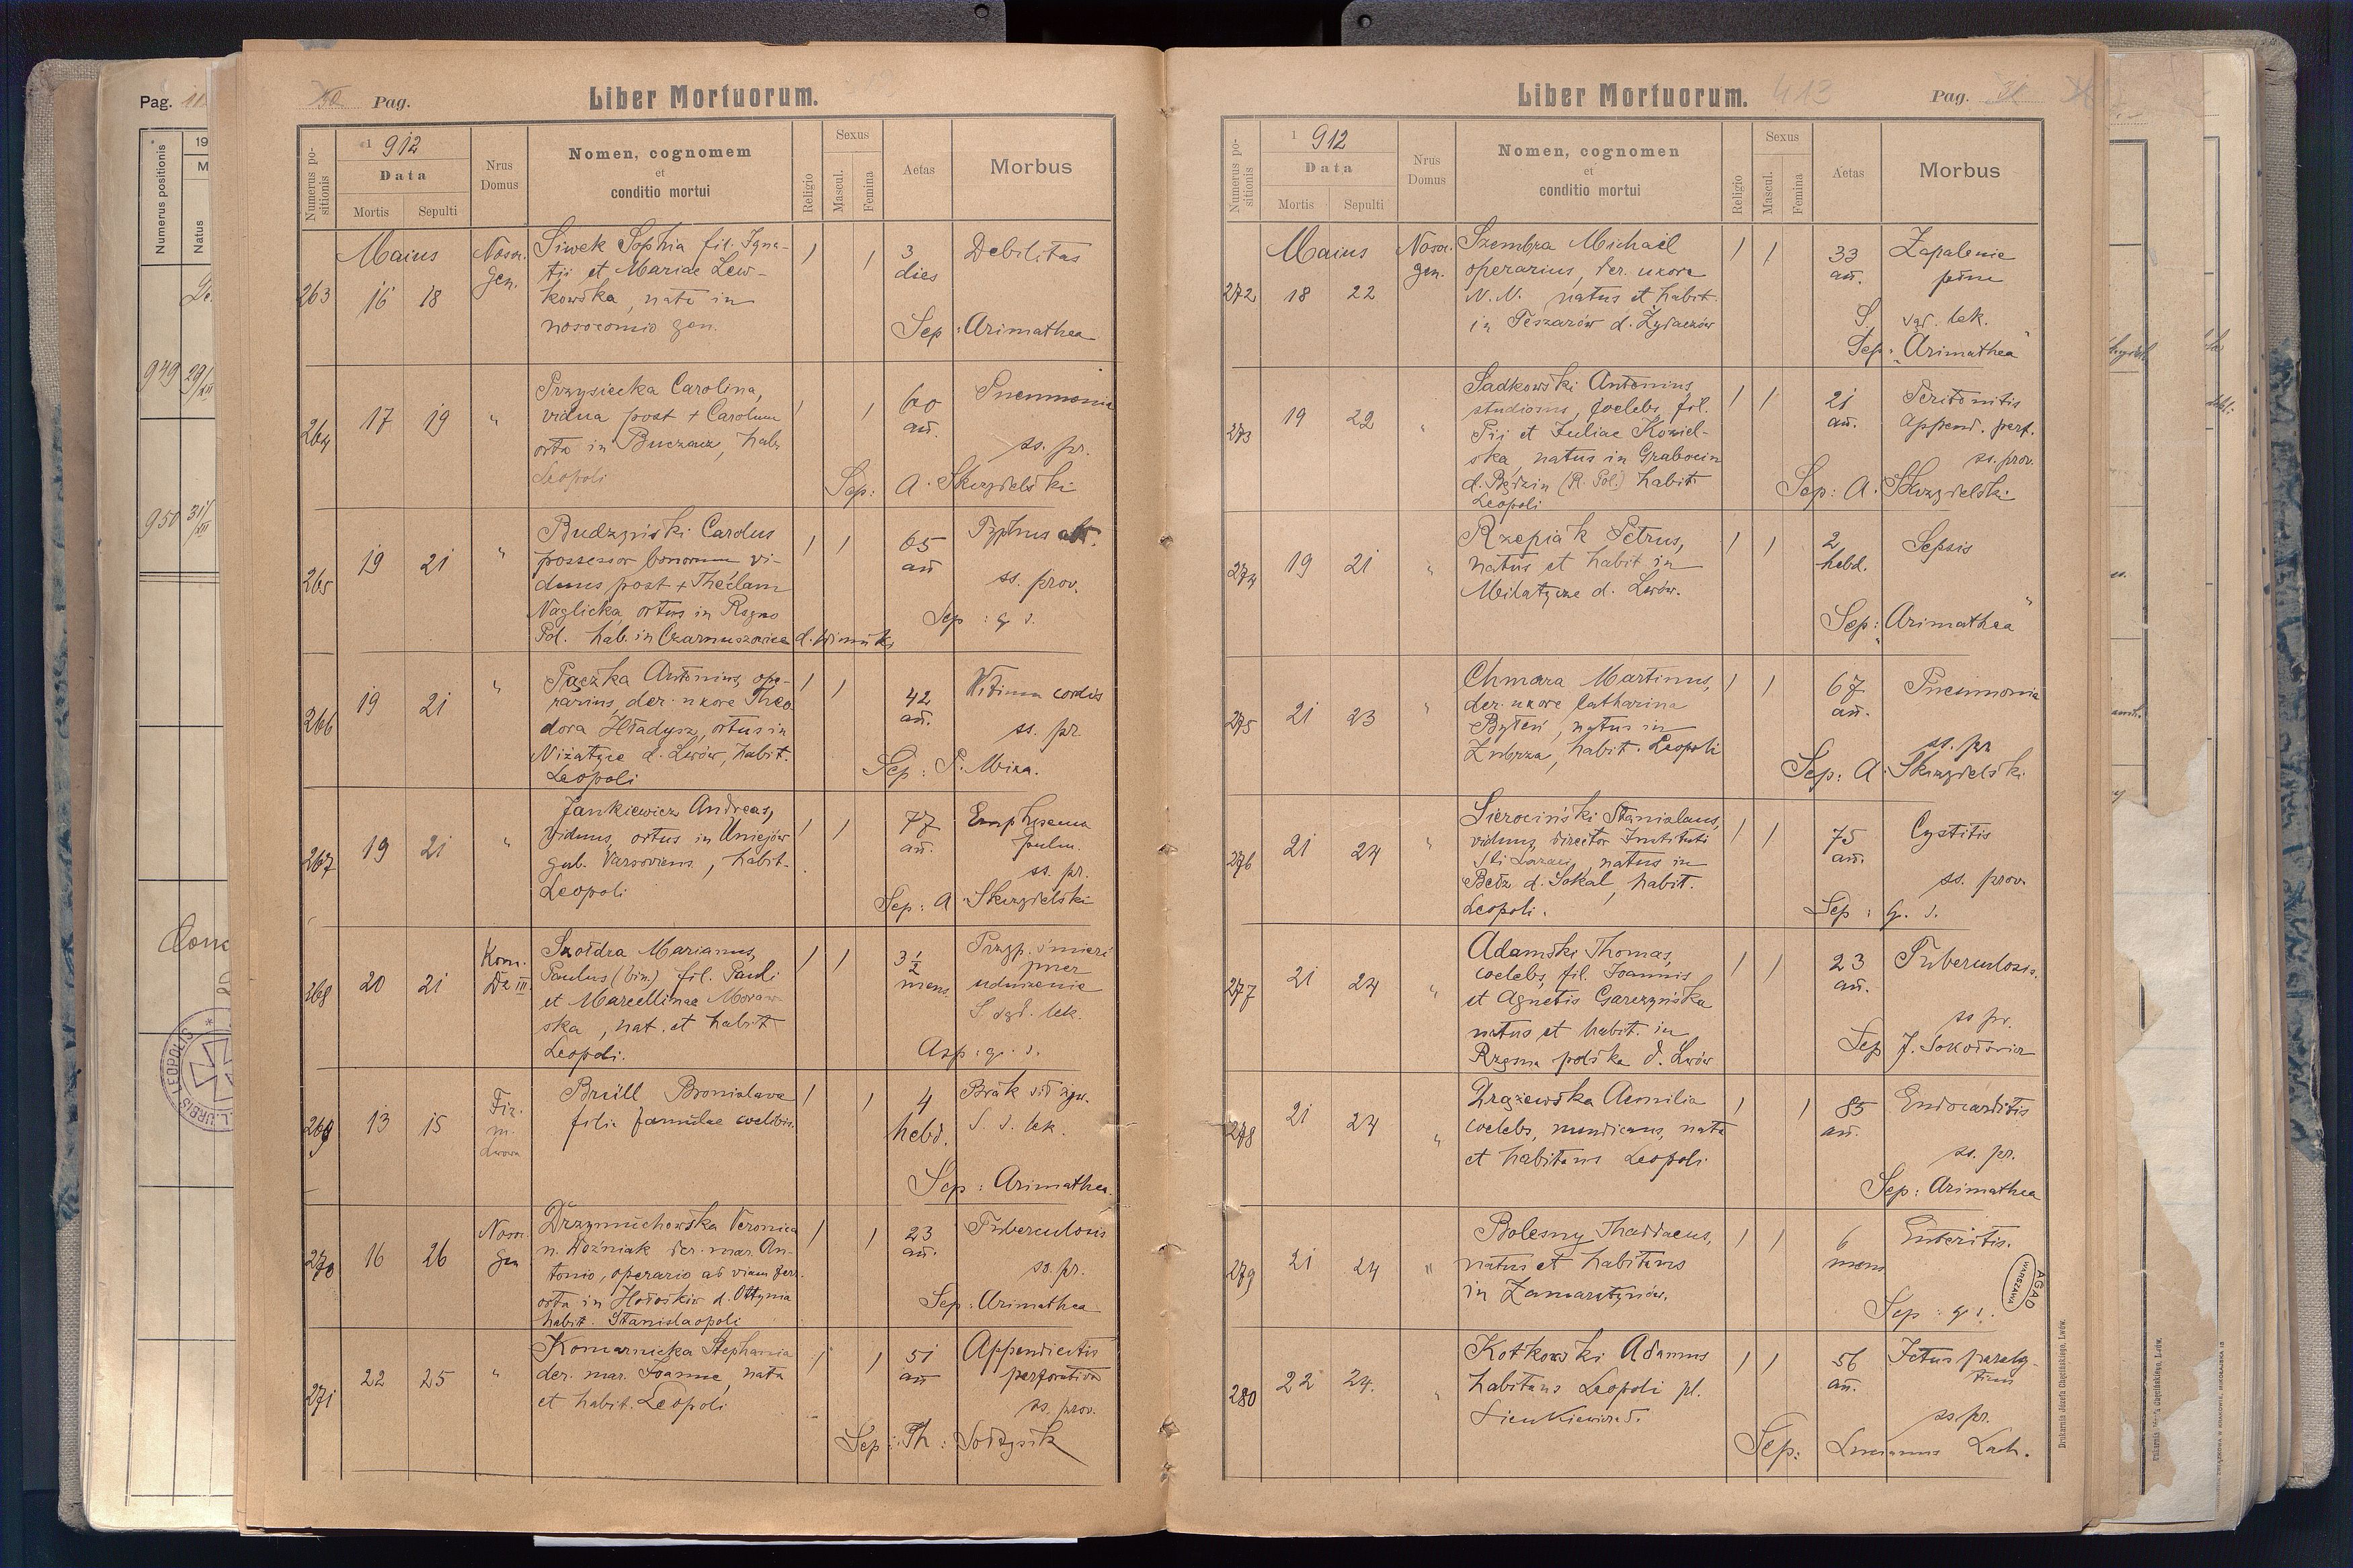 Pag.
Numerus positionis
19
Natus
949 29/XII
950 31/XII
Pag.
Liber Mortuorum.
Numerus positionis
1912
Data
Mortis
Sepulti
Nrus Domus
Nomen, cognomen
et
conditio mortui
Religio
Sexus
Mascul.
Femina
Aetas
Morbus
Maius
263
16
18
Nosoc. gen.
Siwek Sophia fil. Igna-
tii et Mariae Lew-
kowska, nata in
nosocomio gen.
1
1
3
dies
Debilitas
Sep: Arimathea
264
17
19
"
Przysiecka Carolina,
vidua post + Carolum
orta in Buczacz, hab.
Leopoli
1
1
60
an.
Pneumonia
ss. pr.
Sep: A. Skrzydelski
265
19
21
"
Budzyński Carolus
possessor bonorum vi-
duus post + Theclam
Naglicka, ortus in Regno
Pol. hab. in Czarnuszowice d. Winniki
1
1
65
an
Typhus
ss. prov.
Sep: g. s.
266
19
21
"
Pączka Antonius, ope-
rarius, der. uxore Theo
dora Hładysz, ortus in
d. Lwów, habit.
Leopoli
1
1
42
an.
Vitium cordis
ss. pr
Sep: P. Miza.
267
19
21
"
Jankiewicz Andreas,
viduus, ortus in Uniejów
gub. Varsoviens., habit.
Leopoli
1
1
77
an.
Emphysema
pulm.
ss. pr.
Sep: A Skrzydelski
268
20
21
Kom. Dz III.
Szołdra Marianus,
Paulus (bin) fil. Pauli
et Marcellinae Moraw-
ska, nat. et habit
Leopoli.
1
1
3 1/2
mens.
Przyp. śmierć
przez
uduszenie
S. sąd. lek.
g. s.
269
13
15
Fiz.
m.
Lwowa
Brüll Bronislava
filia famulae coelibis.
1
1
4
hebd.
Brak sił żyw.
S. s. lek.
Sep: Arimathea.
270
16
26
Nosoc. gen
Drzymuchowska Veronica
n. Woźniak der. mar. An-
tonio, operario ad viam ferr.
orta in Hołoskiw d. Ottynia
habit. Stanislaopoli
1
1
23
an.
Tuberculosis
ss. pr.
Sep: Arimathea
271
22
25
"
Komarnicka Stephania
der. mar. Joanne, nata
et habit. Leopoli
1
1
51
an
Appendicitis
perforativa
ss. prov.
Sep: Th: Sołtysik
Liber Mortuorum.
413
Pag. 31
Numerus positionis
1912
Data
Mortis
Sepulti
Nrus Domus
Nomen, cognomen
et
conditio mortui
Religio
Sexus
Mascul.
Femina
Aetas
Morbus
Maius
272
18
22
Nosoc. gen.
Szembra Michael
operarius, der. uxore
N. N. natus et habit.
in Teszarów d. Żydaczów
1
1
33
an.
Zapalenie
płuc
S. sąd. lek.
Sep: "Arimathea"
273
19
22
"
Sadkowski Antonius
studiosus, coelebs, fil.
Pii et Juliae Koziel-
ska, natus in Grabocin
d. Będzin (R. Pol.) habit.
Leopoli
1
1
21
an.
Peritonitis
Append. perf.
ss. prov.
Sep: A. Skrzydelski
274
19
21
"
Rzepiak Petrus,
natus et habit in
Milatycze d. Lwów.
1
1
2
hebd.
Sepsis
Sep: "Arimathea"
275
21
23
"
Chmara Martinus,
der. uxore Catharina
Byteń, natus in
Zubrza, habit. Leopoli
1
1
67
an.
Pneumonia
ss. pr
Sep: A. Skrzydelski
276
21
24
"
Sierociński Stanislaus,
viduus, director Instituti
Sti Lazari, natus in
Bełz d. Sokal, habit.
Leopoli.
1
1
75
an.
Cystitis
ss. prov.
Sep: g. s.
277
21
24
"
Adamski Thomas,
coelebs, fil. Joannis
et Agnetis Garczyńska
natus et habit. in
Rzęsna polska d. Lwów
1
1
23
an.
Tuberculosis.
ss pr.
Sep J.
278
21
24
"
Aemilia
coelebs, mendicans, nata
et habitans Leopoli
1
1
85
an.
Endocarditis
ss. pr.
Sep: Arimathea
279
21
24
"
Bolesny Thaddaeus,
natus et habitans
in Zamarstynów.
1
1
6
mens
Enteritis.
Sep: g. s.
AGAD
WARSZAWA
280
22
24.
"
Kotkowski Adamus
habitans Leopoli pl.
1
1
56
an.
Ictus paraly-
ticus
ss. pr.
Sep: Lucianus Lach.
Drukarnia Józefa Chęcińskiego. Lwów.